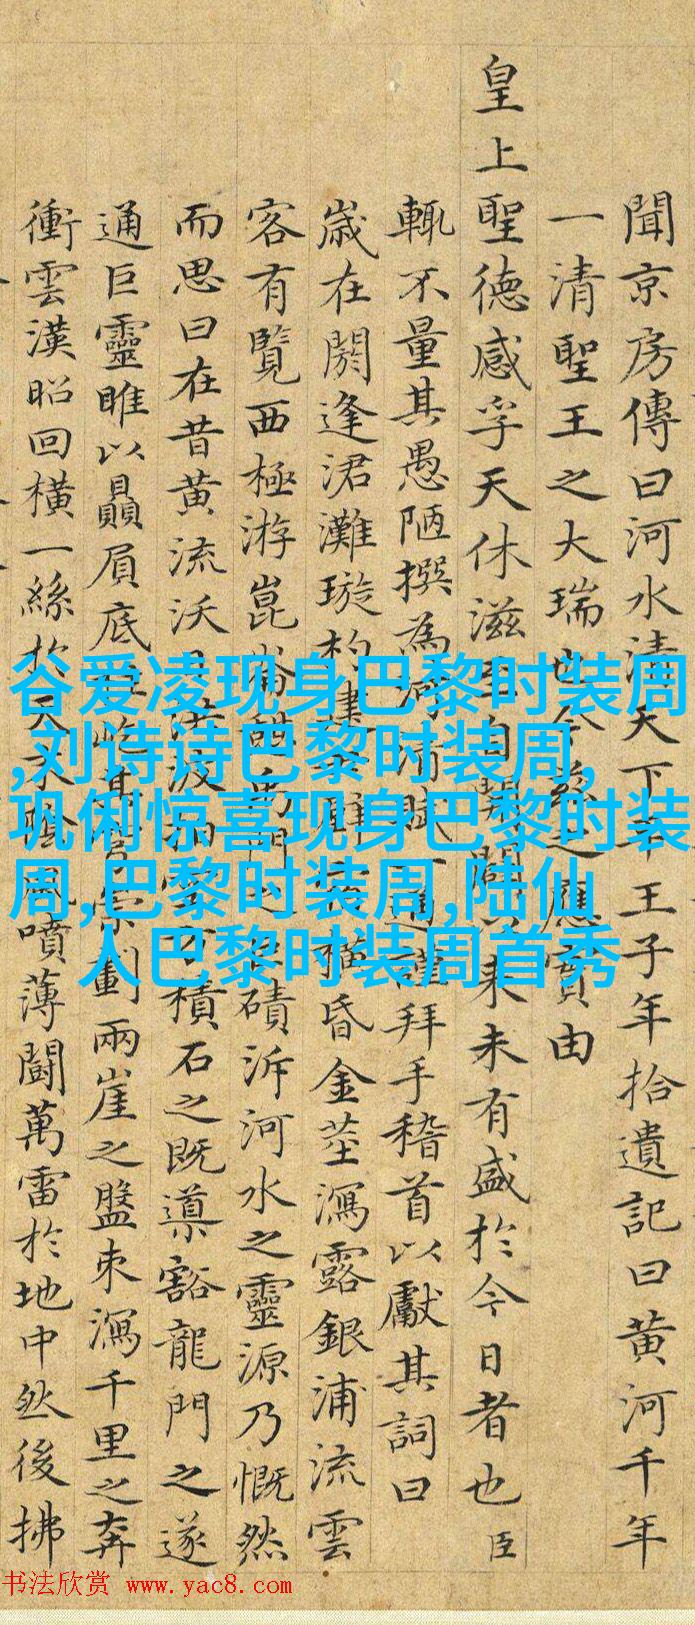 聞京房傳曰河水清天下平王子年拾遺記曰黃河千年
一清聖王之大瑞也今茲之應實由
皇上聖德感孚天休滋至自開闢以來未有盛於今日者也臣
輒不量其愚陋撰為河清賦一通謹拜手稽首以獻其詞曰
歲在閼逢涒灘璇杓建昏金莖瀉露銀浦流雲
客有覽西極游崑崙門之磧泝河水之靈源乃慨然
而思曰在昔黃流沃日洪波積石之既導豁龍門之遂
通巨靈雎以贔屓底柱屹其崇劃兩崖之盤束瀉千里之奔
衝雲漢昭回橫一絲於天末陰風噴薄鬪萬雷於地中然後拂
谷爱凌现身巴黎时装周
,刘诗诗巴黎时装周,
巩俐惊喜现身巴黎时装
周,巴黎时装周,陆仙
人巴黎时装周首秀
书法欣赏 www.yac8.com